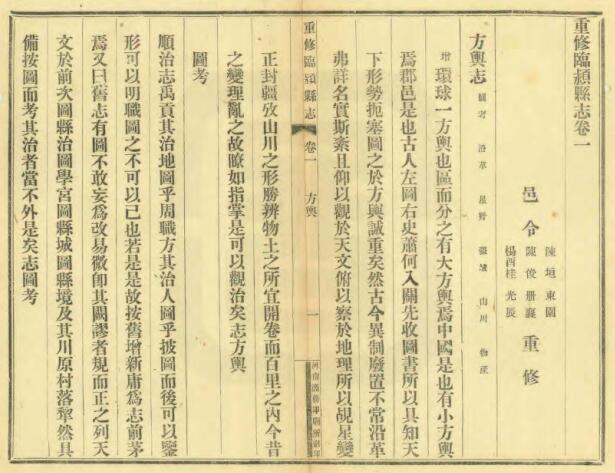 重修臨潁縣志卷一
邑令
陳垣東園
陳俊册襄
楊酉桂光辰
重修
方輿志
圖考 沿革 星野 疆域 山川 物產
增環球一方輿也區而分之有大方輿焉中國是也有小方輿
焉郡邑是也古人左圖右史蕭何入關先收圖書所以具知天
下形勢扼塞圖之於方輿誠重矣然古今異制廢置不常沿革
弗詳名實斯紊且仰以觀於天文俯以察於地理所以覘星變
重修臨潁縣志
卷一
方輿
一
正封疆攷山川之形勝辨物土之所宜開卷而百里之內今昔
之變理亂之故瞭如指掌是可以觀治矣志方輿
圖考
順治志禹貢其治地圖乎周職方其治人圖乎披圖而後可以鑒
形可以明職圖之不可以已也若是是故按舊增新庸為志前茅
焉又曰舊志有圖不敢妄為改易微卽其闕謬者規而正之列天
文於前次圖縣治圖學宮圖縣城圖縣境及其川原村落犂然具
備按圖而考其治者當不外是矣志圖考